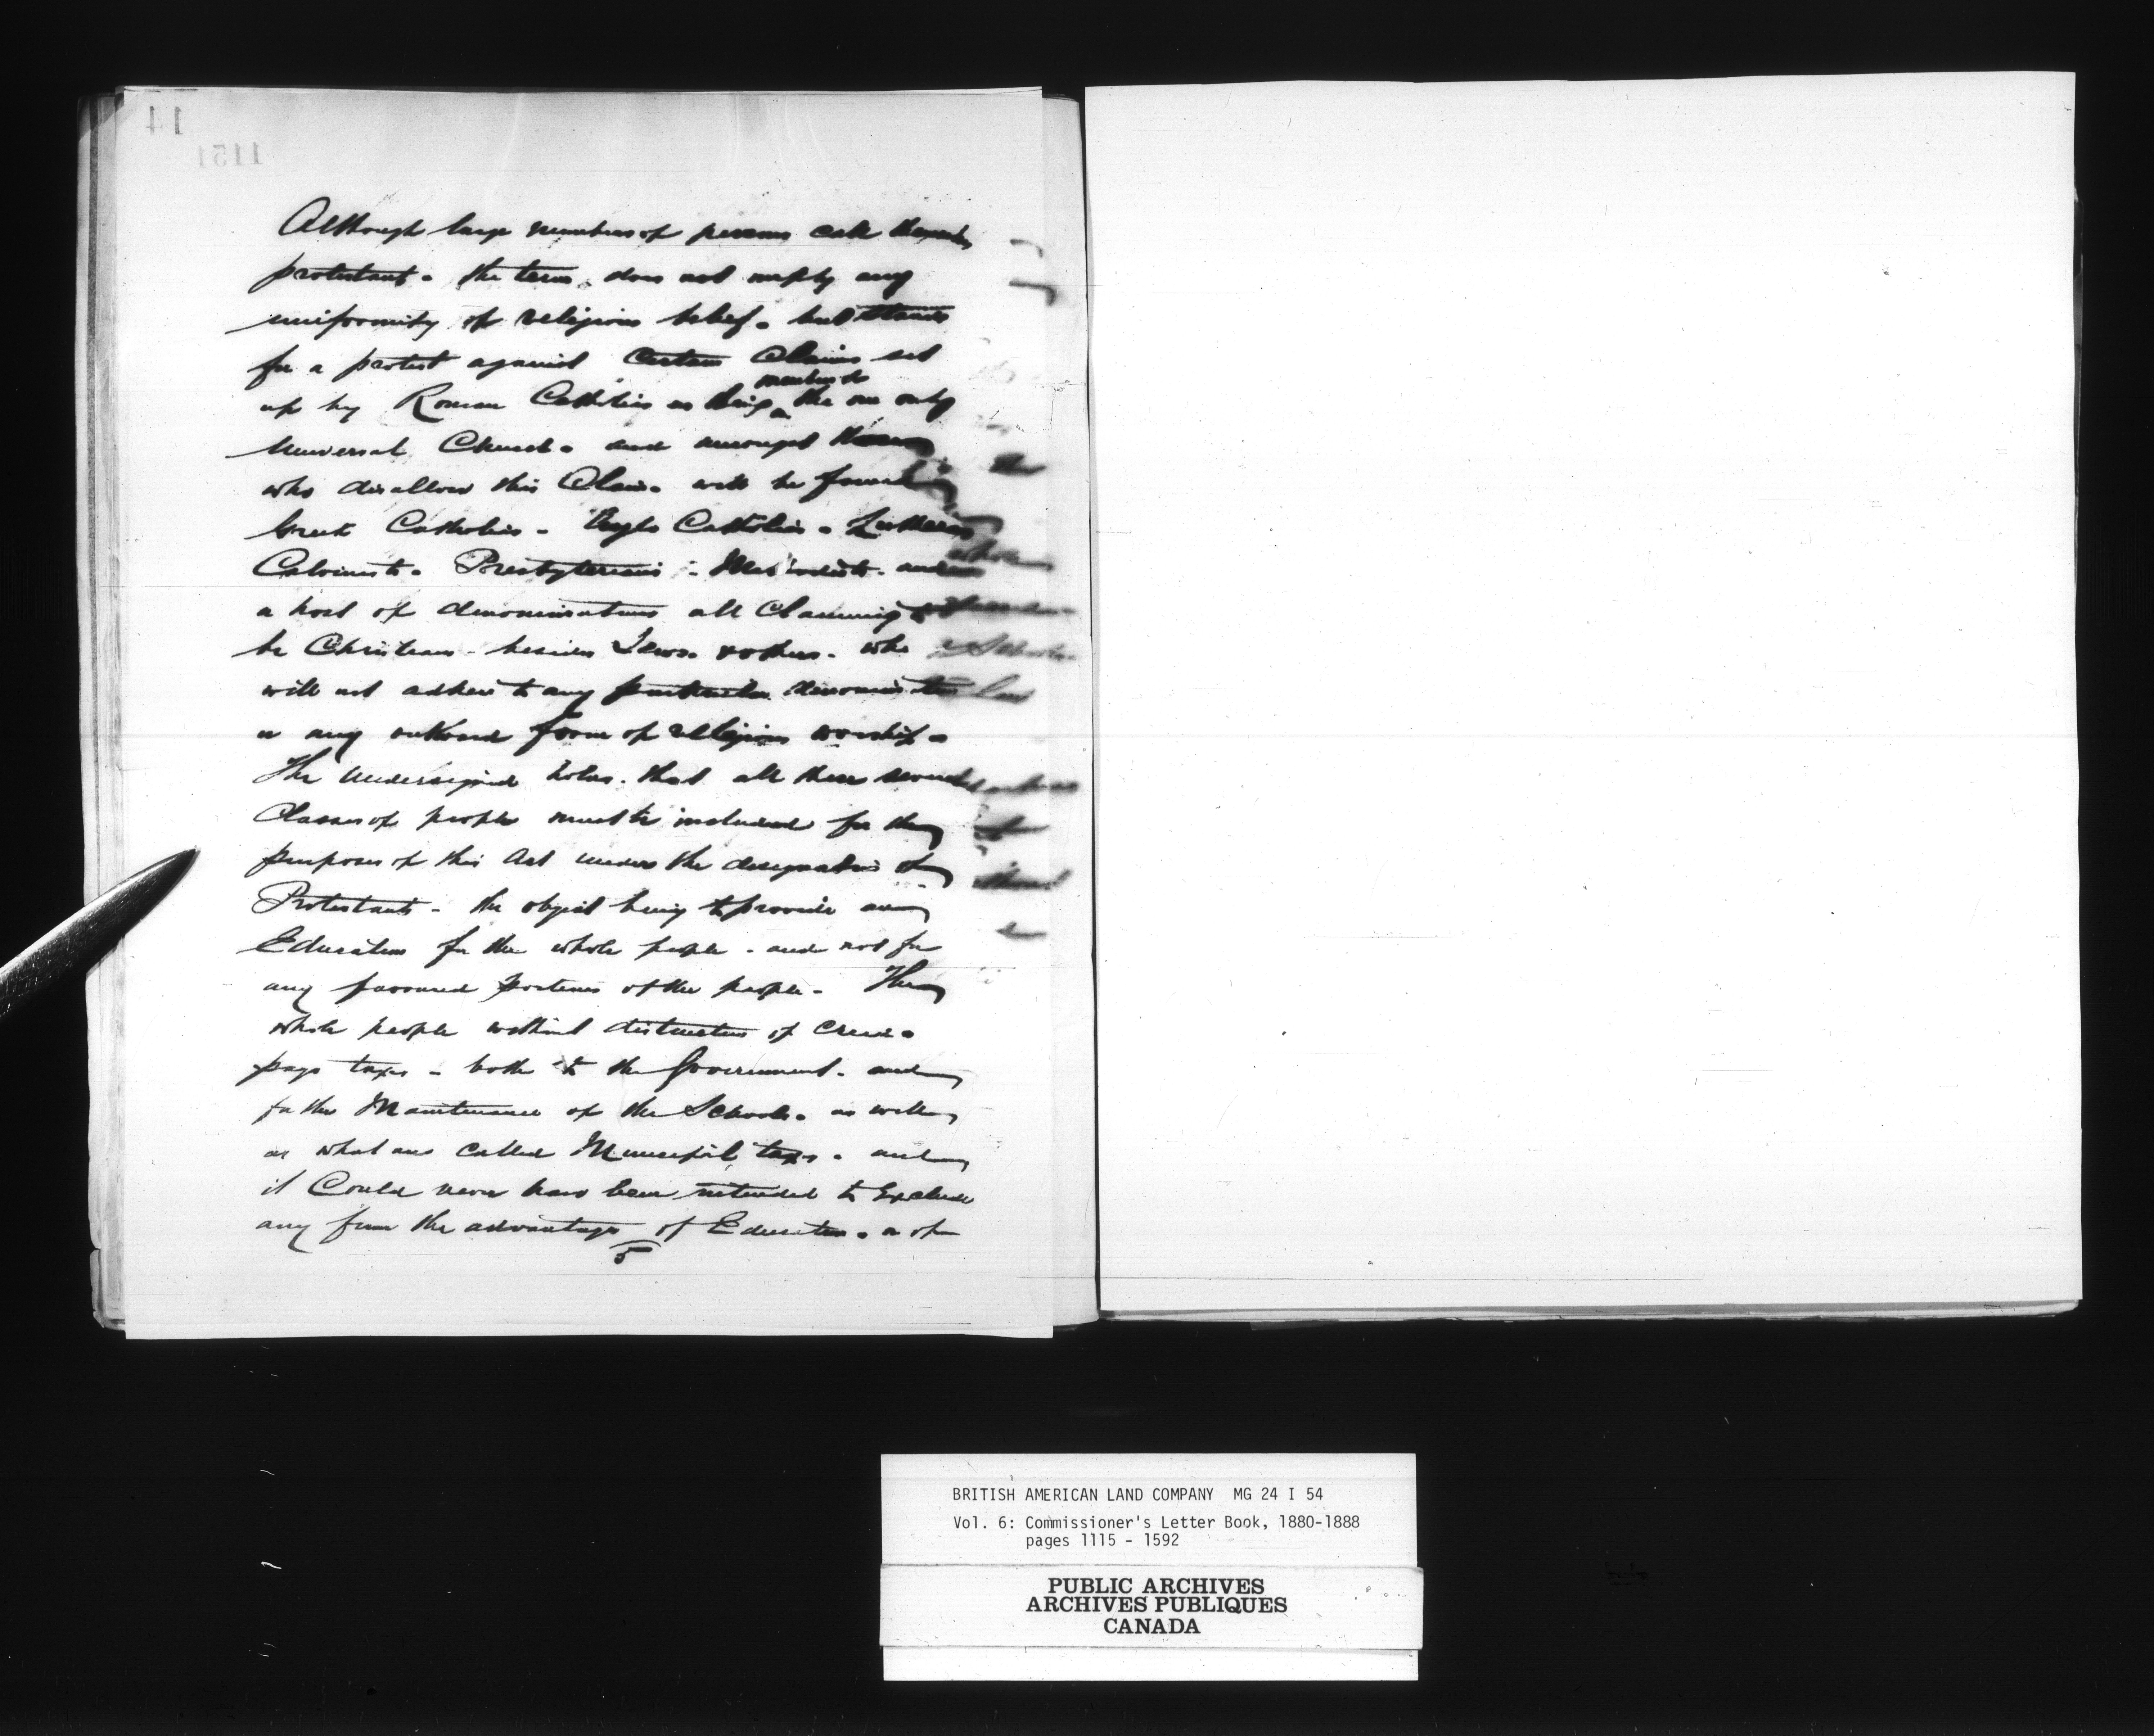 14
1151
Although large numbers of persons call themselves
protestant - the term does not imply any
uniformity of religious belief - but stands
for a protest against Certain Claims set
up by Roman Catholics as being members of the one only
Universal Church - and amongst those
who disallow this Claim - will be found
Greek Catholics - Anglo Catholics - Lutherans
Calvinists - Presbyterians - Methodists - and
a host of denominations all Claiming to
be Christians - besides Jews & others - who
will not adhere to any particular denomination
or any outward form of religious worship -
The Undersigned holds that all these several
Classes of people must be included for the
purposes of this Act under the designation of
Protestants - the object being to provide an
Education for the whole people - and not for
any favoured portions of the people - The
whole people without distinction of Creed -
pays taxes - both to the Government - and
for the Maintenance of the Schools - as well
as what are called Municipal taxes - and
it Could never have been intended to Exclude
any from the advantages of Education - or of
5
BRITISH AMERICAN LAND COMPANY MG 24 I 54
Vol. 6: Commissioner's Letter Book, 1880-1888
pages 1115 - 1592
PUBLIC ARCHIVES
ARCHIVES PUBLIQUES
CANADA